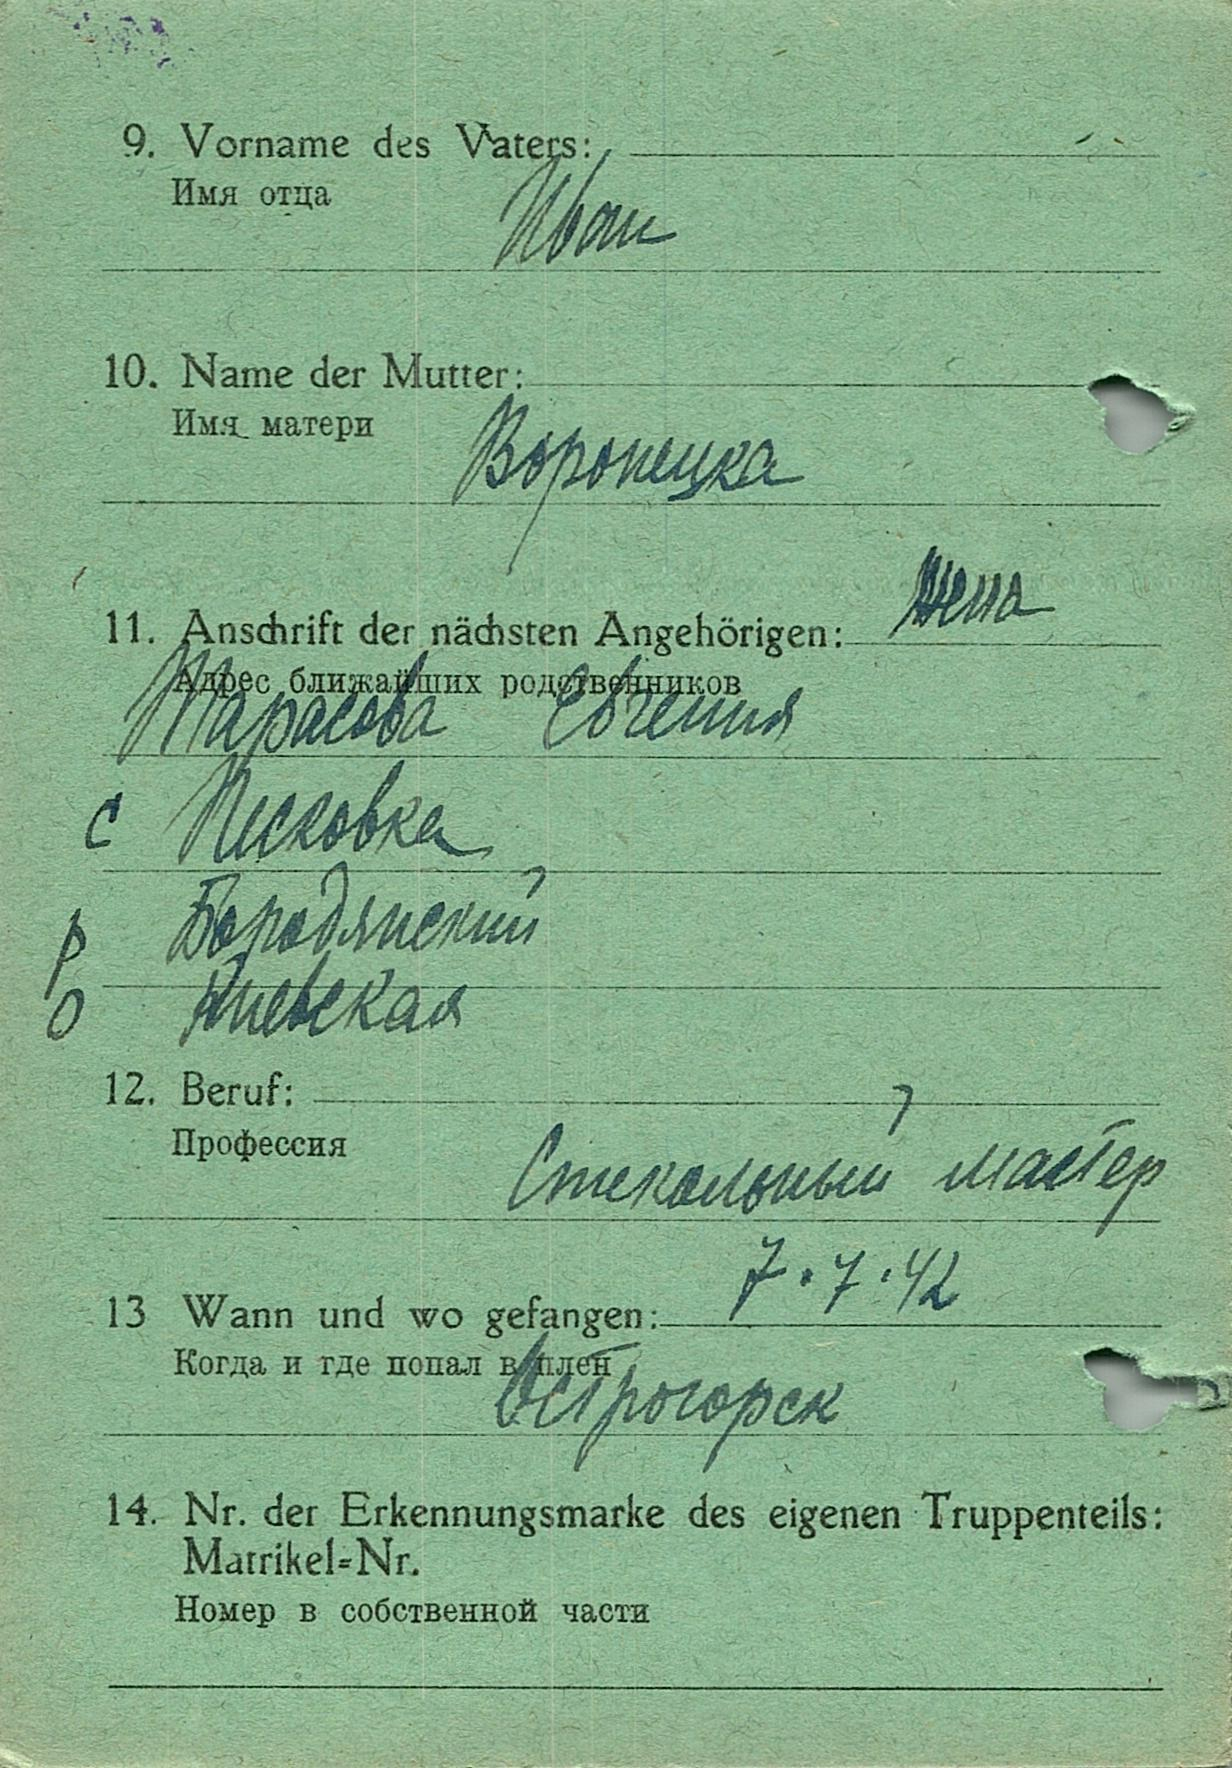 9. Vorname des Vaters:
Имя отца
Иван
10. Name der Mutter:
Имя матери
Воронецка
Жена
11. Anschrift der nächsten Angehörigen:
Адрес ближайших родственников
Тарасова Евгения
с Писковка
р Бородянский
о Киевская
12. Beruf:
Профессия
Стекольный мастер
7.7.42
13 Wann und wo gefangen:
Когда и где попал в плен
Острогорск
14. Nr. der Erkennungsmarke des eigenen Truppenteils:
Matrikel=Nr.
Номер в собственной части